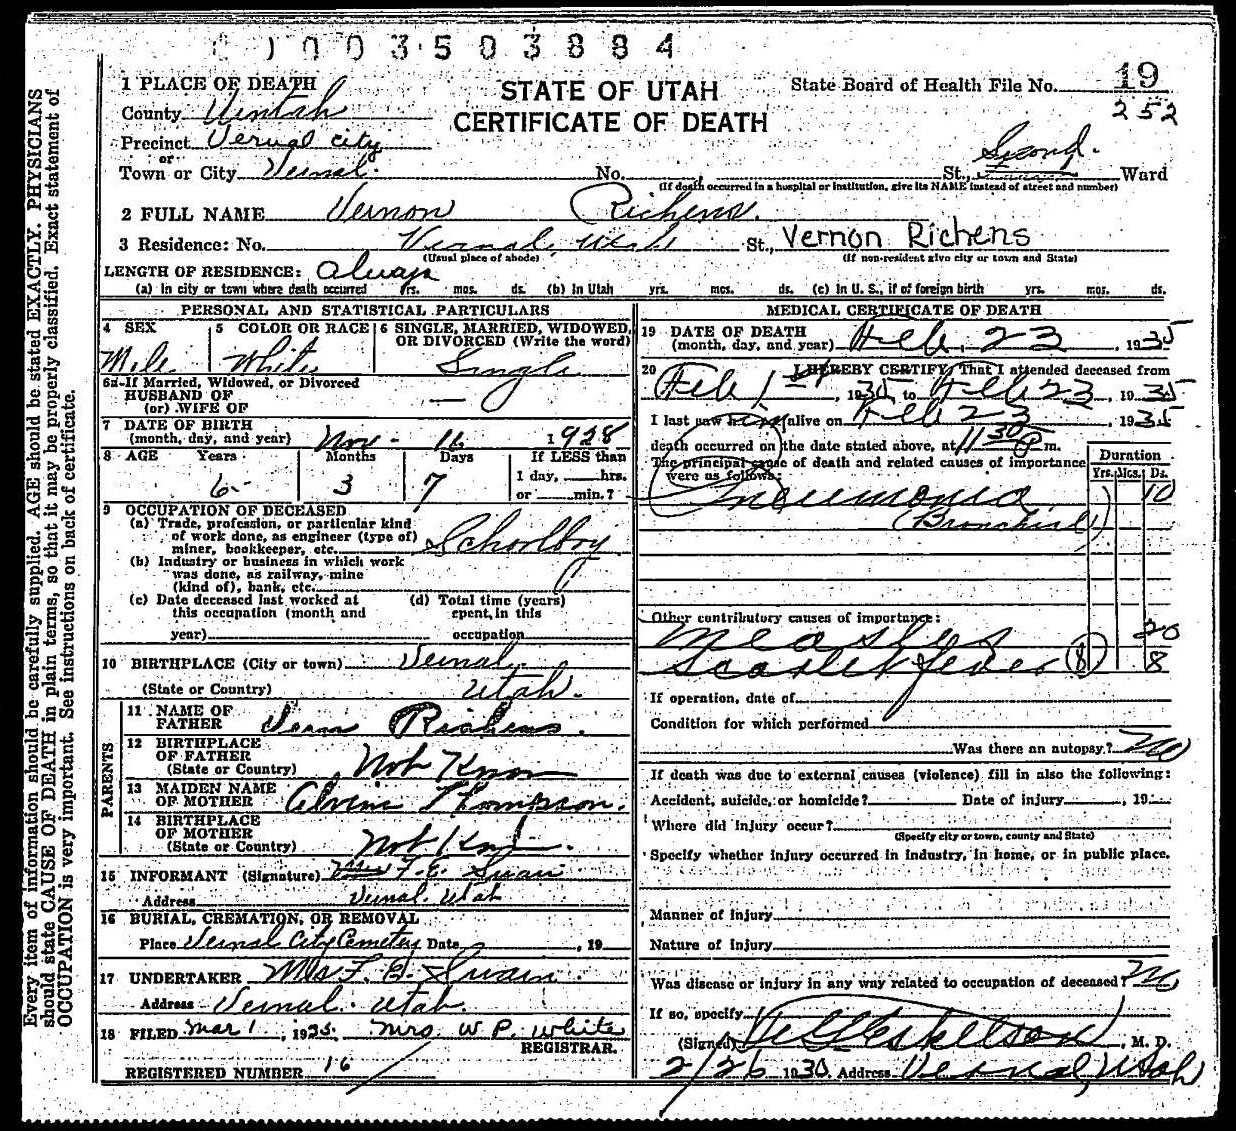 003503884
1 PLACE OF DEATH
STATE OF UTAH
State Board of Health File No. 19
County Uintah
CERTIFICATE OF DEATH
252
Precinct Vernal City
or
Town or City Vernal. No. St., Second. Ward
(If death occurred in a hospital or institution, give its NAME instead of street and number)
2 FULL NAME Vernon Richens.
3 Residence: No. Vernal, Utah St., Vernon Richens
(Usual place of abode) (If non-resident give city or town and State)
LENGTH OF RESIDENCE: Always
(a) In city or town where death occurred yrs. mos. ds. (b) In Utah yrs. mos. ds. (c) in U. S., if of foreign birth yrs. mos. ds.
PERSONAL AND STATISTICAL PARTICULARS
4 SEX Male
5 COLOR OR RACE White
6 SINGLE, MARRIED, WIDOWED, OR DIVORCED (Write the word) Single
6a-If Married, Widowed, or Divorced
HUSBAND OF
(or) WIFE OF —
7 DATE OF BIRTH
(month, day, and year) Nov - 16 1928
8 AGE Years Months Days If LESS than
6 3 7 1 day, hrs.
or min.?
9 OCCUPATION OF DECEASED
(a) Trade, profession, or particular kind
of work done, as engineer (type of)
miner, bookkeeper, etc. Schoolboy
(b) Industry or business in which work
was done, as railway, mine
(kind of), bank, etc.
(c) Date deceased last worked at
this occupation (month and
year)
(d) Total time (years)
spent in this
occupation
10 BIRTHPLACE (City or town) Vernal,
(State or Country) Utah.
PARENTS
11 NAME OF
FATHER Vern Richens.
12 BIRTHPLACE
OF FATHER
(State or Country) Not Known
13 MAIDEN NAME
OF MOTHER Thompson.
14 BIRTHPLACE
OF MOTHER
(State or Country) Not Known.
15 INFORMANT (Signature) Mrs F. E. Swain
Address Vernal, Utah
16 BURIAL, CREMATION, OR REMOVAL
Place Vernal City Cemetery Date , 19
17 UNDERTAKER Mrs F. E. Swain.
Address Vernal. Utah.
18 FILED Mar 1, 1935. Mrs. W P. White
REGISTRAR.
REGISTERED NUMBER 16
MEDICAL CERTIFICATE OF DEATH
19 DATE OF DEATH
(month, day, and year) Feb. 23, 1935
20 I HEREBY CERTIFY, That I attended deceased from
Feb 1st, 1935, to Feb 23, 1935
I last saw him alive on Feb 23, 1935
death occurred on the date stated above, at 11 30 P m.
The principal cause of death and related causes of importance
were as follows:
Duration
Yrs. Mos. Ds.
Pneumonia 10
(Bronchial)
Other contributory causes of importance:
Measles 20
Scarlet fever (8) 8
If operation, date of
Condition for which performed
Was there an autopsy? No
If death was due to external causes (violence) fill in also the following:
Accident, suicide, or homicide? Date of injury , 19
Where did injury occur?
(Specify city or town, county and State)
Specify whether injury occurred in industry, in home, or in public place.
Manner of injury
Nature of injury
Was disease or injury in any way related to occupation of deceased? No
If so, specify
(Signed) Eskelson, M. D.
2/26 1930. Address Vernal, Utah
Every item of information should be carefully supplied. AGE should be stated EXACTLY. PHYSICIANS
should state CAUSE OF DEATH in plain terms, so that it may be properly classified. Exact statement of
OCCUPATION is very important. See instructions on back of certificate.